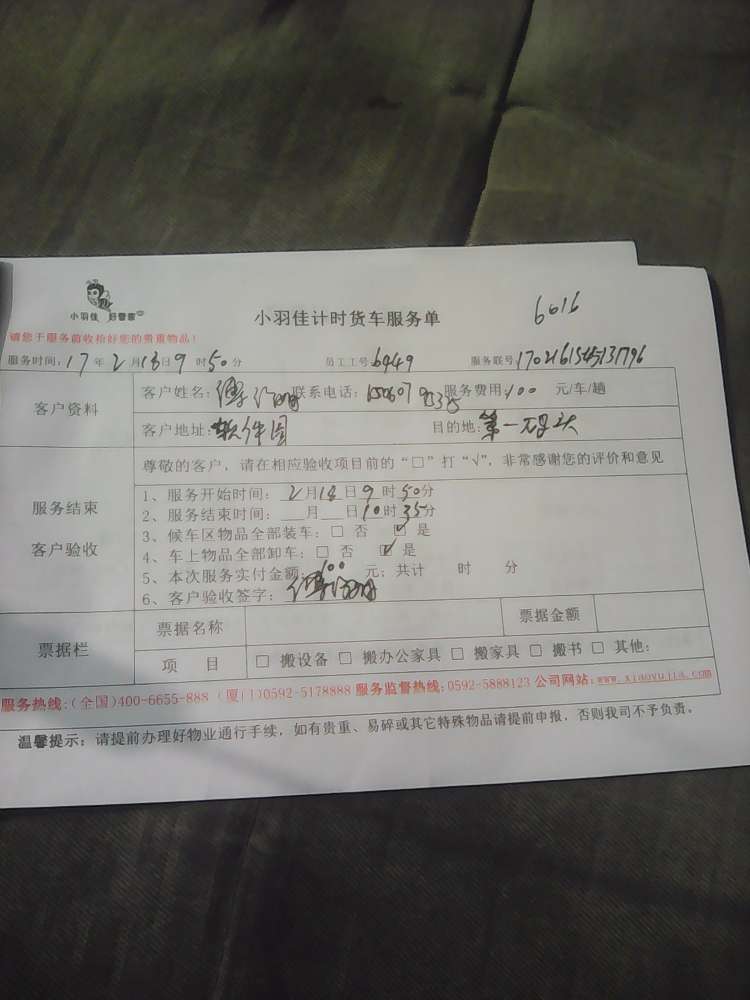 6016
小羽佳 好管家
小羽佳计时货车服务单
请您于服务前收拾好您的贵重物品！
服务时间：17年2月18日9时50分 员工工号：6449 服务联号：
客户资料
客户姓名： 联系电话： 服务费用：100 元/车/趟
客户地址：软件园 目的地：第一码头
服务结束
客户验收
尊敬的客户，请在相应验收项目前的“□”打“√”，非常感谢您的评价和意见
1、服务开始时间：2月18日9时50分
2、服务结束时间：__月__日10时35分
3、候车区物品全部装车：□ 否 ☑ 是
4、车上物品全部卸车：□ 否 ☑ 是
5、本次服务实付金额100元；共计 时 分
6、客户验收签字：
票据栏
票据名称 票据金额
项 目 □ 搬设备 □ 搬办公家具 □ 搬家具 □ 搬书 □ 其他：
服务热线：(全国)400-6655-888 (厦门)0592-5178888 服务监督热线：0592-5888123 公司网站：www.xiaoyujia.com
温馨提示：请提前办理好物业通行手续，如有贵重、易碎或其它特殊物品请提前申报，否则我司不予负责。